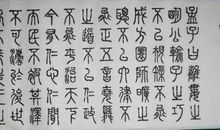 孟子曰離婁之
明公輸子之巧
不以規矩不能
成方圓師曠之
聰不以六律不
能正五音堯舜
之道不以仁政
不能平治天下
今有仁心仁聞
而民不被其澤
不可法於後世